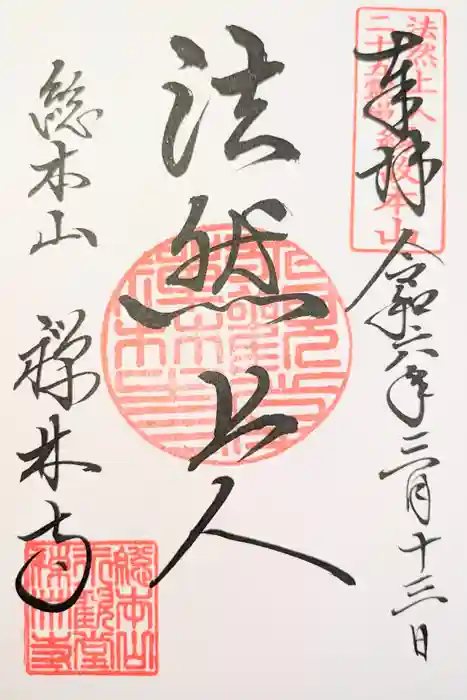 奉拝
令和六年三月十三日
法然上人
二十五霊場
本山
法然上人
総本山
禅林寺
総本山
永観堂
禅林寺